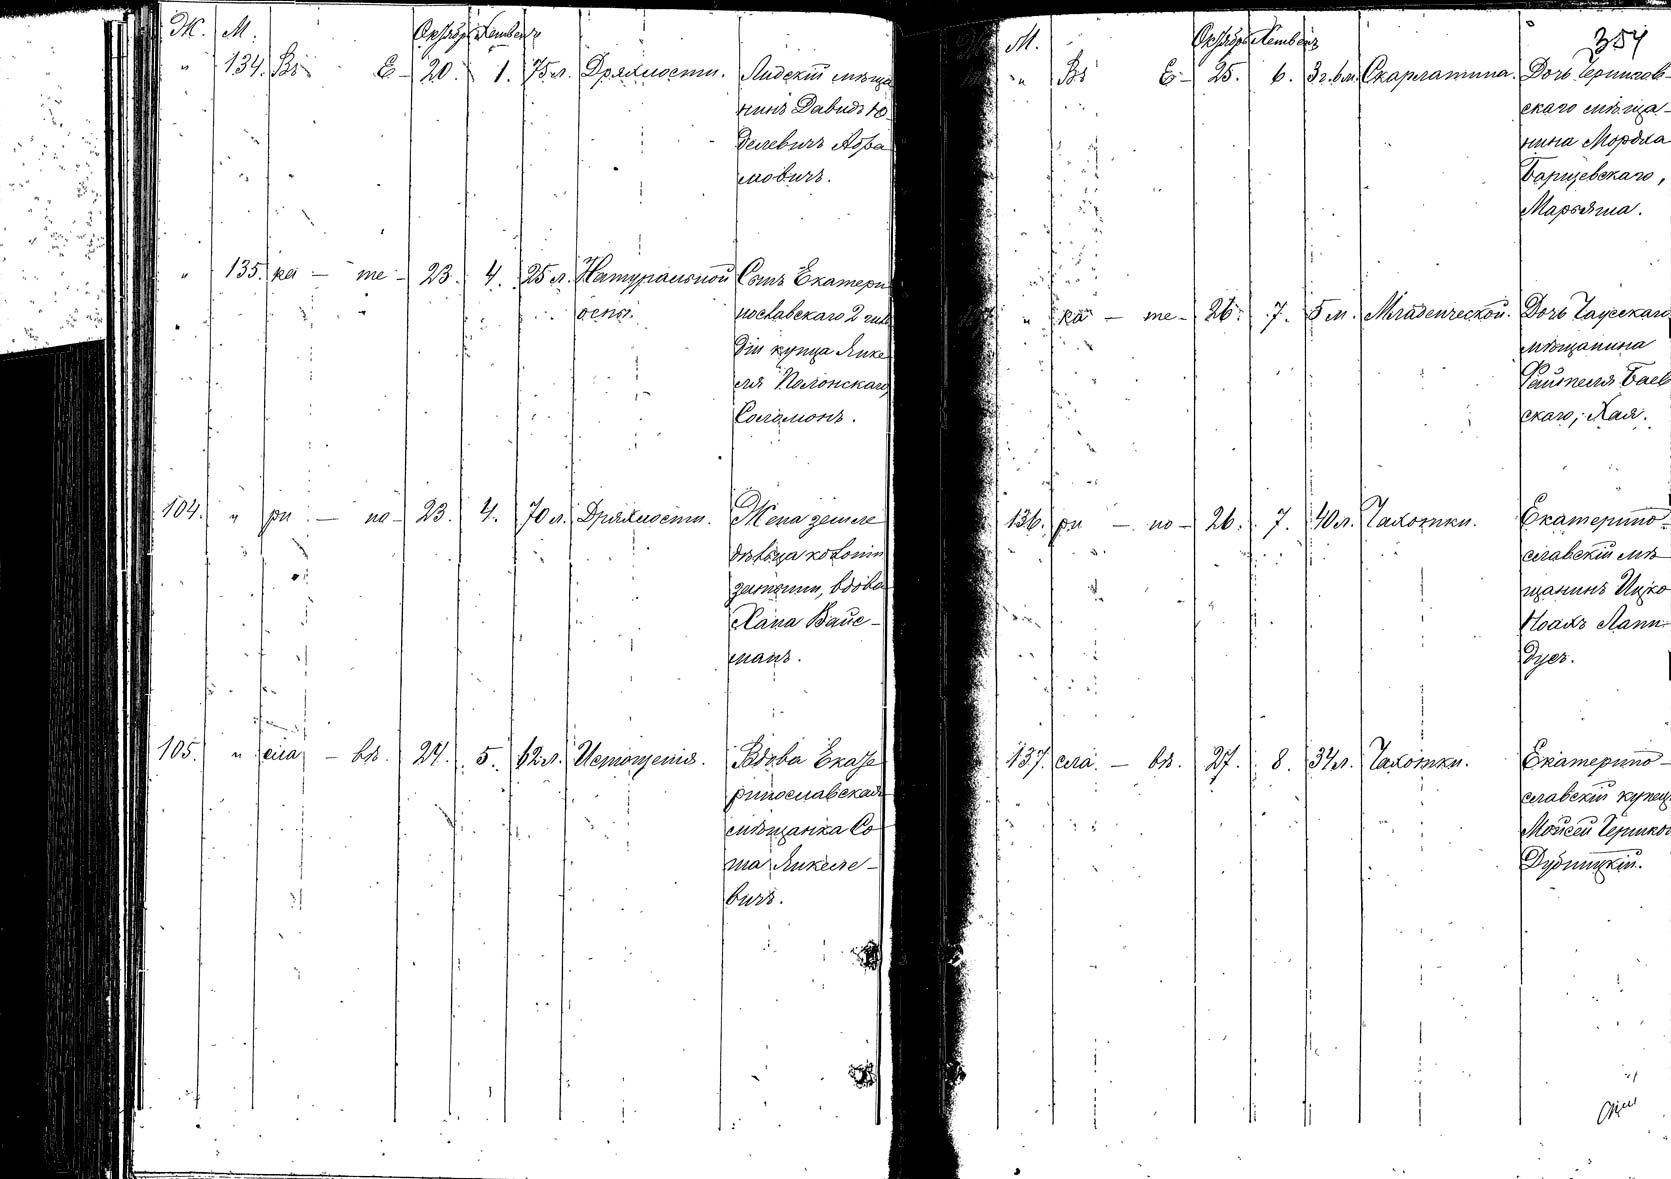 Ж. М. Октябр Хешвенъ
" 134. Въ Е- 20. 1. 75 л. Дряхлости. Лидскій мѣща
нинъ Давидъ Ю-
делевичъ Абра
мовичъ.
" 135. ка - те- 23. 4. 25 л. Натуральной Сынъ Екатери
оспы. нославскаго 2 гиль
діи купца Янке
ля Полонскаго,
Соломонъ.
104. " ри - но- 23. 4. 70 л. Дряхлости. Жена земле
дѣльца колоніи
вдова
Хана Вайс-
манъ.
105. " сла - вѣ. 24. 5. 62 л. Истощенія. Вдова Екате
ринославская
мѣщанка Со
ша Янкеле-
вичъ.
354
М. Октябрь Хешвенъ
" Въ Е- 25. 6. 3 г. 6 м. Скарлатина. Дочь Чернигов-
скаго мѣща-
нина Мордха
Барщевскаго,
Марьяша.
" ка - те- 26. 7. 5 м. Младенческой. Дочь Чаусскаго
мѣщанина
Файтеля Баев
скаго, Хая.
136. ри - но- 26. 7. 40 л. Чахотки. Екатерино-
славскій мѣ-
щанинъ Ицко
Ноахъ Лапи-
дусъ.
137. сла - вѣ. 27. 8. 34 л. Чахотки. Екатерино-
славскій купецъ
Мойсей
Дубницкій.